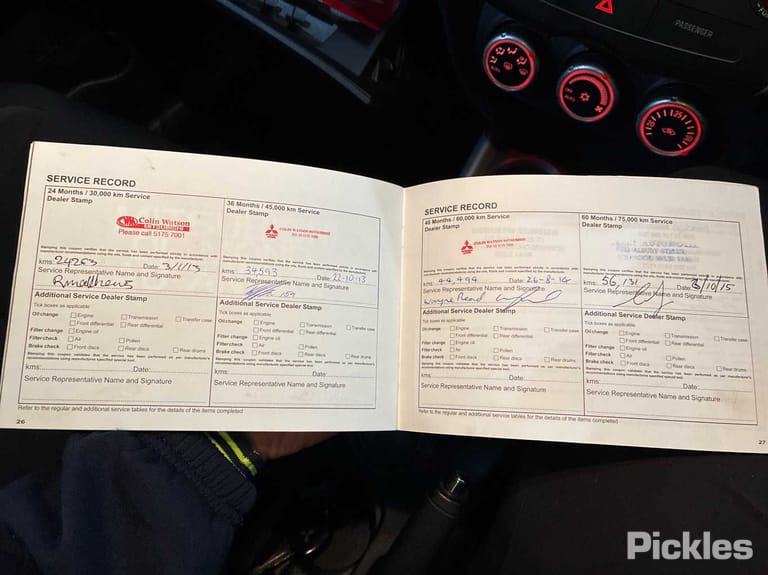 PASSENGER
AUTO
SERVICE RECORD
24 Months / 30,000 km Service
Dealer Stamp
Colin Watson
MITSUBISHI
Please call 5175 7001
Stamping this coupon verifies that the service has been performed strictly in accordance with
kms: 24253 Date: 3/1/13
Service Representative Name and Signature
Rmatthews
Additional Service Dealer Stamp
Tick boxes as applicable
Oil change Engine Transmission Transfer case
Front differential Rear differential
Filter change Engine oil
Filter check Air Pollen
Brake check Front discs Rear discs Rear drums
kms: Date:
Service Representative Name and Signature
36 Months / 45,000 km Service
Dealer Stamp
COLIN WATSON MITSUBISHI
kms: 34593 Date: 22-10-13
Service Representative Name and Signature
Additional Service Dealer Stamp
Tick boxes as applicable
Engine Transmission Transfer case
Front differential Rear differential
Engine oil
Air Pollen
Front discs Rear discs Rear drums
kms: Date:
Service Representative Name and Signature
Refer to the regular and additional service tables for the details of the items completed
26
SERVICE RECORD
48 Months / 60,000 km Service
Dealer Stamp
COLIN WATSON MITSUBISHI
kms: 44,494 Date: 26-8-14
Service Representative Name and Signature
Wayne Read
Additional Service Dealer Stamp
Tick boxes as applicable
Oil change Engine Transmission Transfer case
Front differential Rear differential
Filter change Engine oil
Filter check Air Pollen
Brake check Front discs Rear discs Rear drums
kms: Date:
Service Representative Name and Signature
60 Months / 75,000 km Service
Dealer Stamp
kms: 56,131 Date: /10/15
Service Representative Name and Signature
Additional Service Dealer Stamp
Tick boxes as applicable
Oil change Engine Transmission Transfer case
Front differential Rear differential
Filter change Engine oil
Filter check Air Pollen
Brake check Front discs Rear discs Rear drums
kms: Date:
Service Representative Name and Signature
Refer to the regular and additional service tables for the details of the items completed
27
Pickles